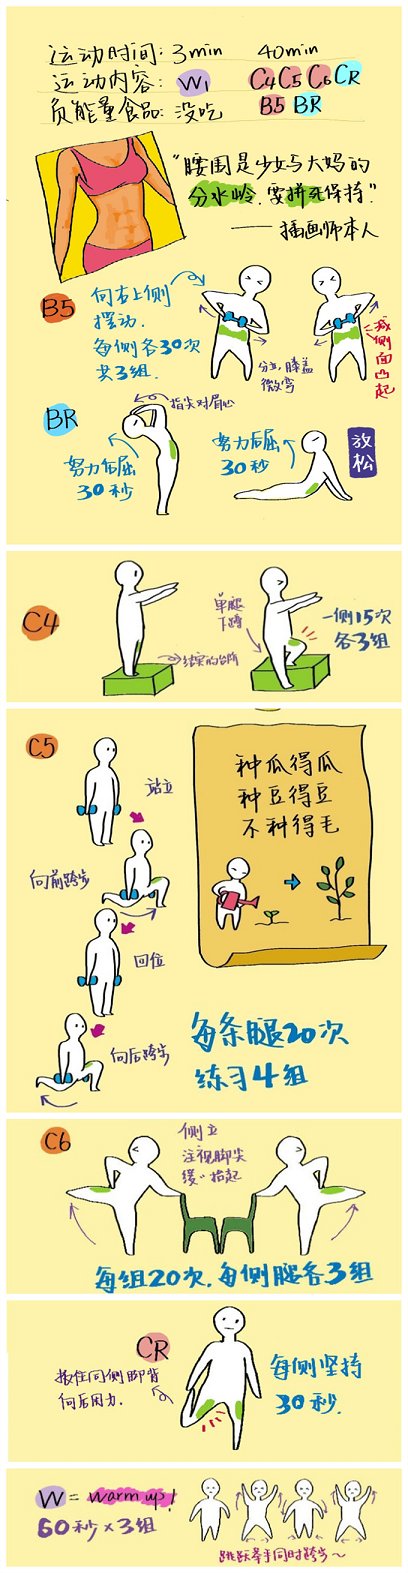 运动时间: 3min 40min
运动内容: W1 C4 C5 C6 CR
负能量食品: 没吃 B5 BR
"腰围是少女与大妈的
分水岭,要拼死保持."
——插画师本人
B5
向右上侧
摆动.
每侧各30次
共3组.
分立,膝盖
微弯
减侧面凸起
BR
指尖对眉心
努力后屈
30秒
努力后屈
30秒
放松
C4
单腿
下蹲
结实的台阶
一侧15次
各3组
C5
站立
向前跨步
回位
向后跨步
种瓜得瓜
种豆得豆
不种得毛
每条腿20次
练习4组
C6
侧立
注视脚尖
缓缓抬起
每组20次.每侧腿各3组
CR
扳住同侧脚背
向后用力.
每侧坚持
30秒.
W = warm up!
60秒×3组
跳跃举手同时跨步~